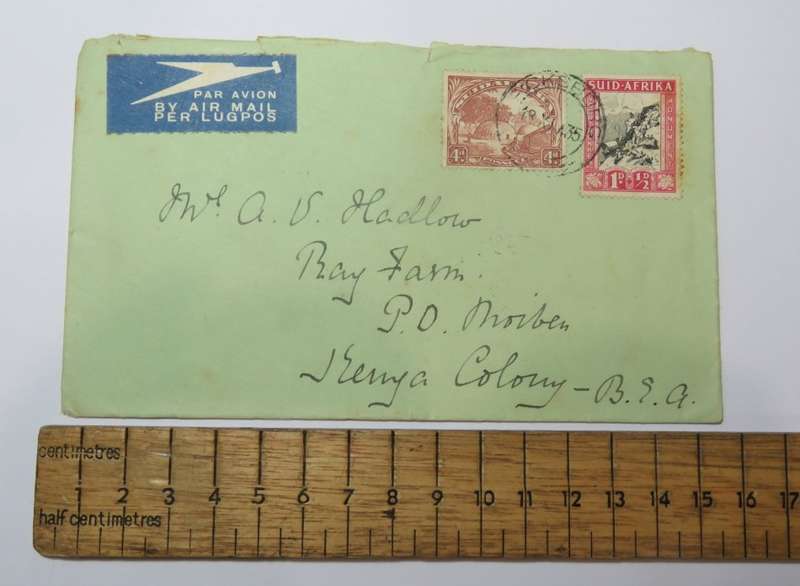 PAR AVION
BY AIR MAIL
PER LUGPOS
4D 4D
35
SUID-AFRIKA
1D. ½D
Mr. A. V. Hadlow
Ray Farm.
P.O. Moiben
Kenya Colony - B.E.A.
centimetres
1 2 3 4 5 6 7 8 9 10 11 12 13 14 15 16 17
half centimetres